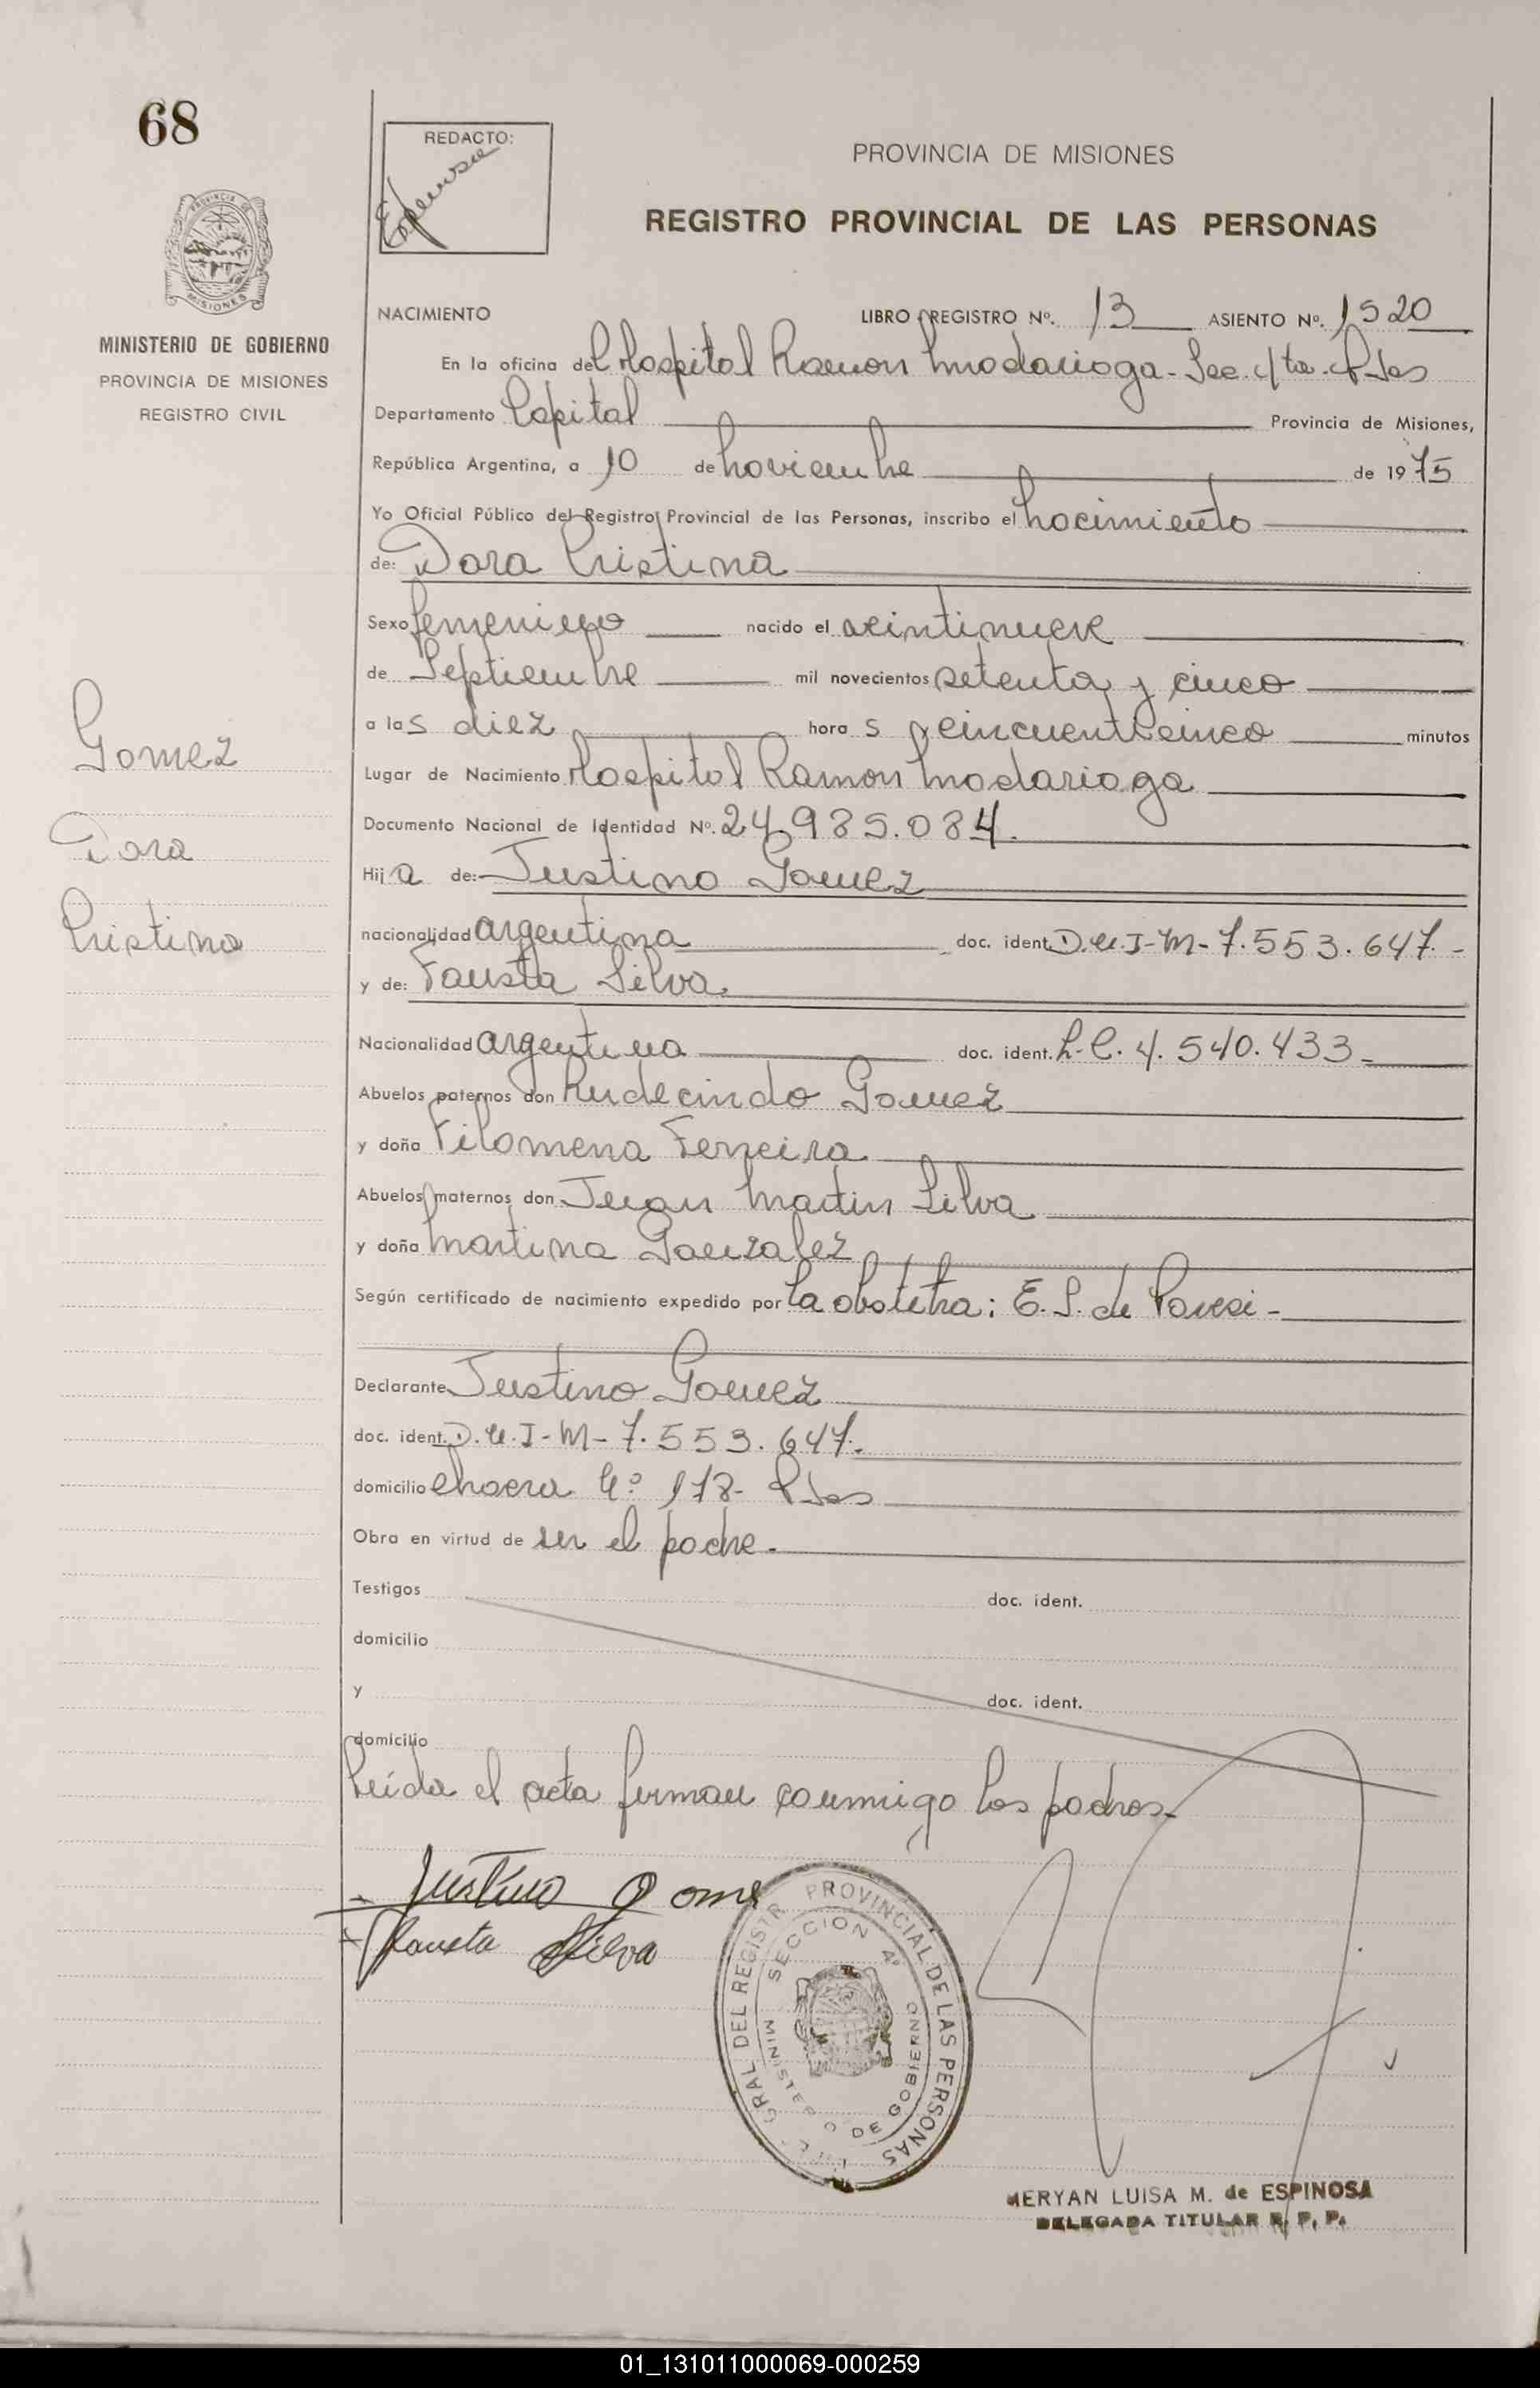 68
REDACTO:
PROVINCIA DE MISIONES
REGISTRO PROVINCIAL DE LAS PERSONAS
PROVINCIA DE MISIONES
MINISTERIO DE GOBIERNO
PROVINCIA DE MISIONES
REGISTRO CIVIL
Gomez
Dora
Cristina
NACIMIENTO LIBRO REGISTRO Nº. 13 ASIENTO Nº. 1520
En la oficina del Hospital Ramon Madariaga - Sec. 4ta. Pdas
Departamento Capital Provincia de Misiones,
República Argentina, a 10 de noviembre de 1975
Yo Oficial Público del Registro Provincial de las Personas, inscribo el nacimiento
de: Dora Cristina
Sexo femenino nacido el veintinueve
de Septiembre mil novecientos setenta y cinco
a las diez horas y cincuenticinco minutos
Lugar de Nacimiento Hospital Ramon Madariaga
Documento Nacional de Identidad Nº. 24.985.084.
Hija de: Justino Gomez
nacionalidad argentina doc. ident. D.N.I-M-7.553.647.-
y de: Fausta Silva.
Nacionalidad argentina doc. ident. L.C. 4.540.433-
Abuelos paternos don Rudecindo Gomez
y doña Filomena Ferreira
Abuelos maternos don Juan Martin Silva
y doña Martina Gonzalez
Según certificado de nacimiento expedido por la obstetra: E. S. de
Declarante Justino Gomez
doc. ident. D.N.I-M-7.553.647.
domicilio chacra Nº 178- Pdas
Obra en virtud de ser el padre.
Testigos doc. ident.
domicilio
y doc. ident.
domicilio
Leída el acta firman conmigo los padres-
Justino Gome
Fausta Silva
GRAL DEL REGISTR PROVINCIAL DE LAS PERSONAS
SECCION 4º
MINISTERIO DE GOBIERNO
MERYAN LUISA M. de ESPINOSA
DELEGADA TITULAR R. P. P.
01_131011000069-000259